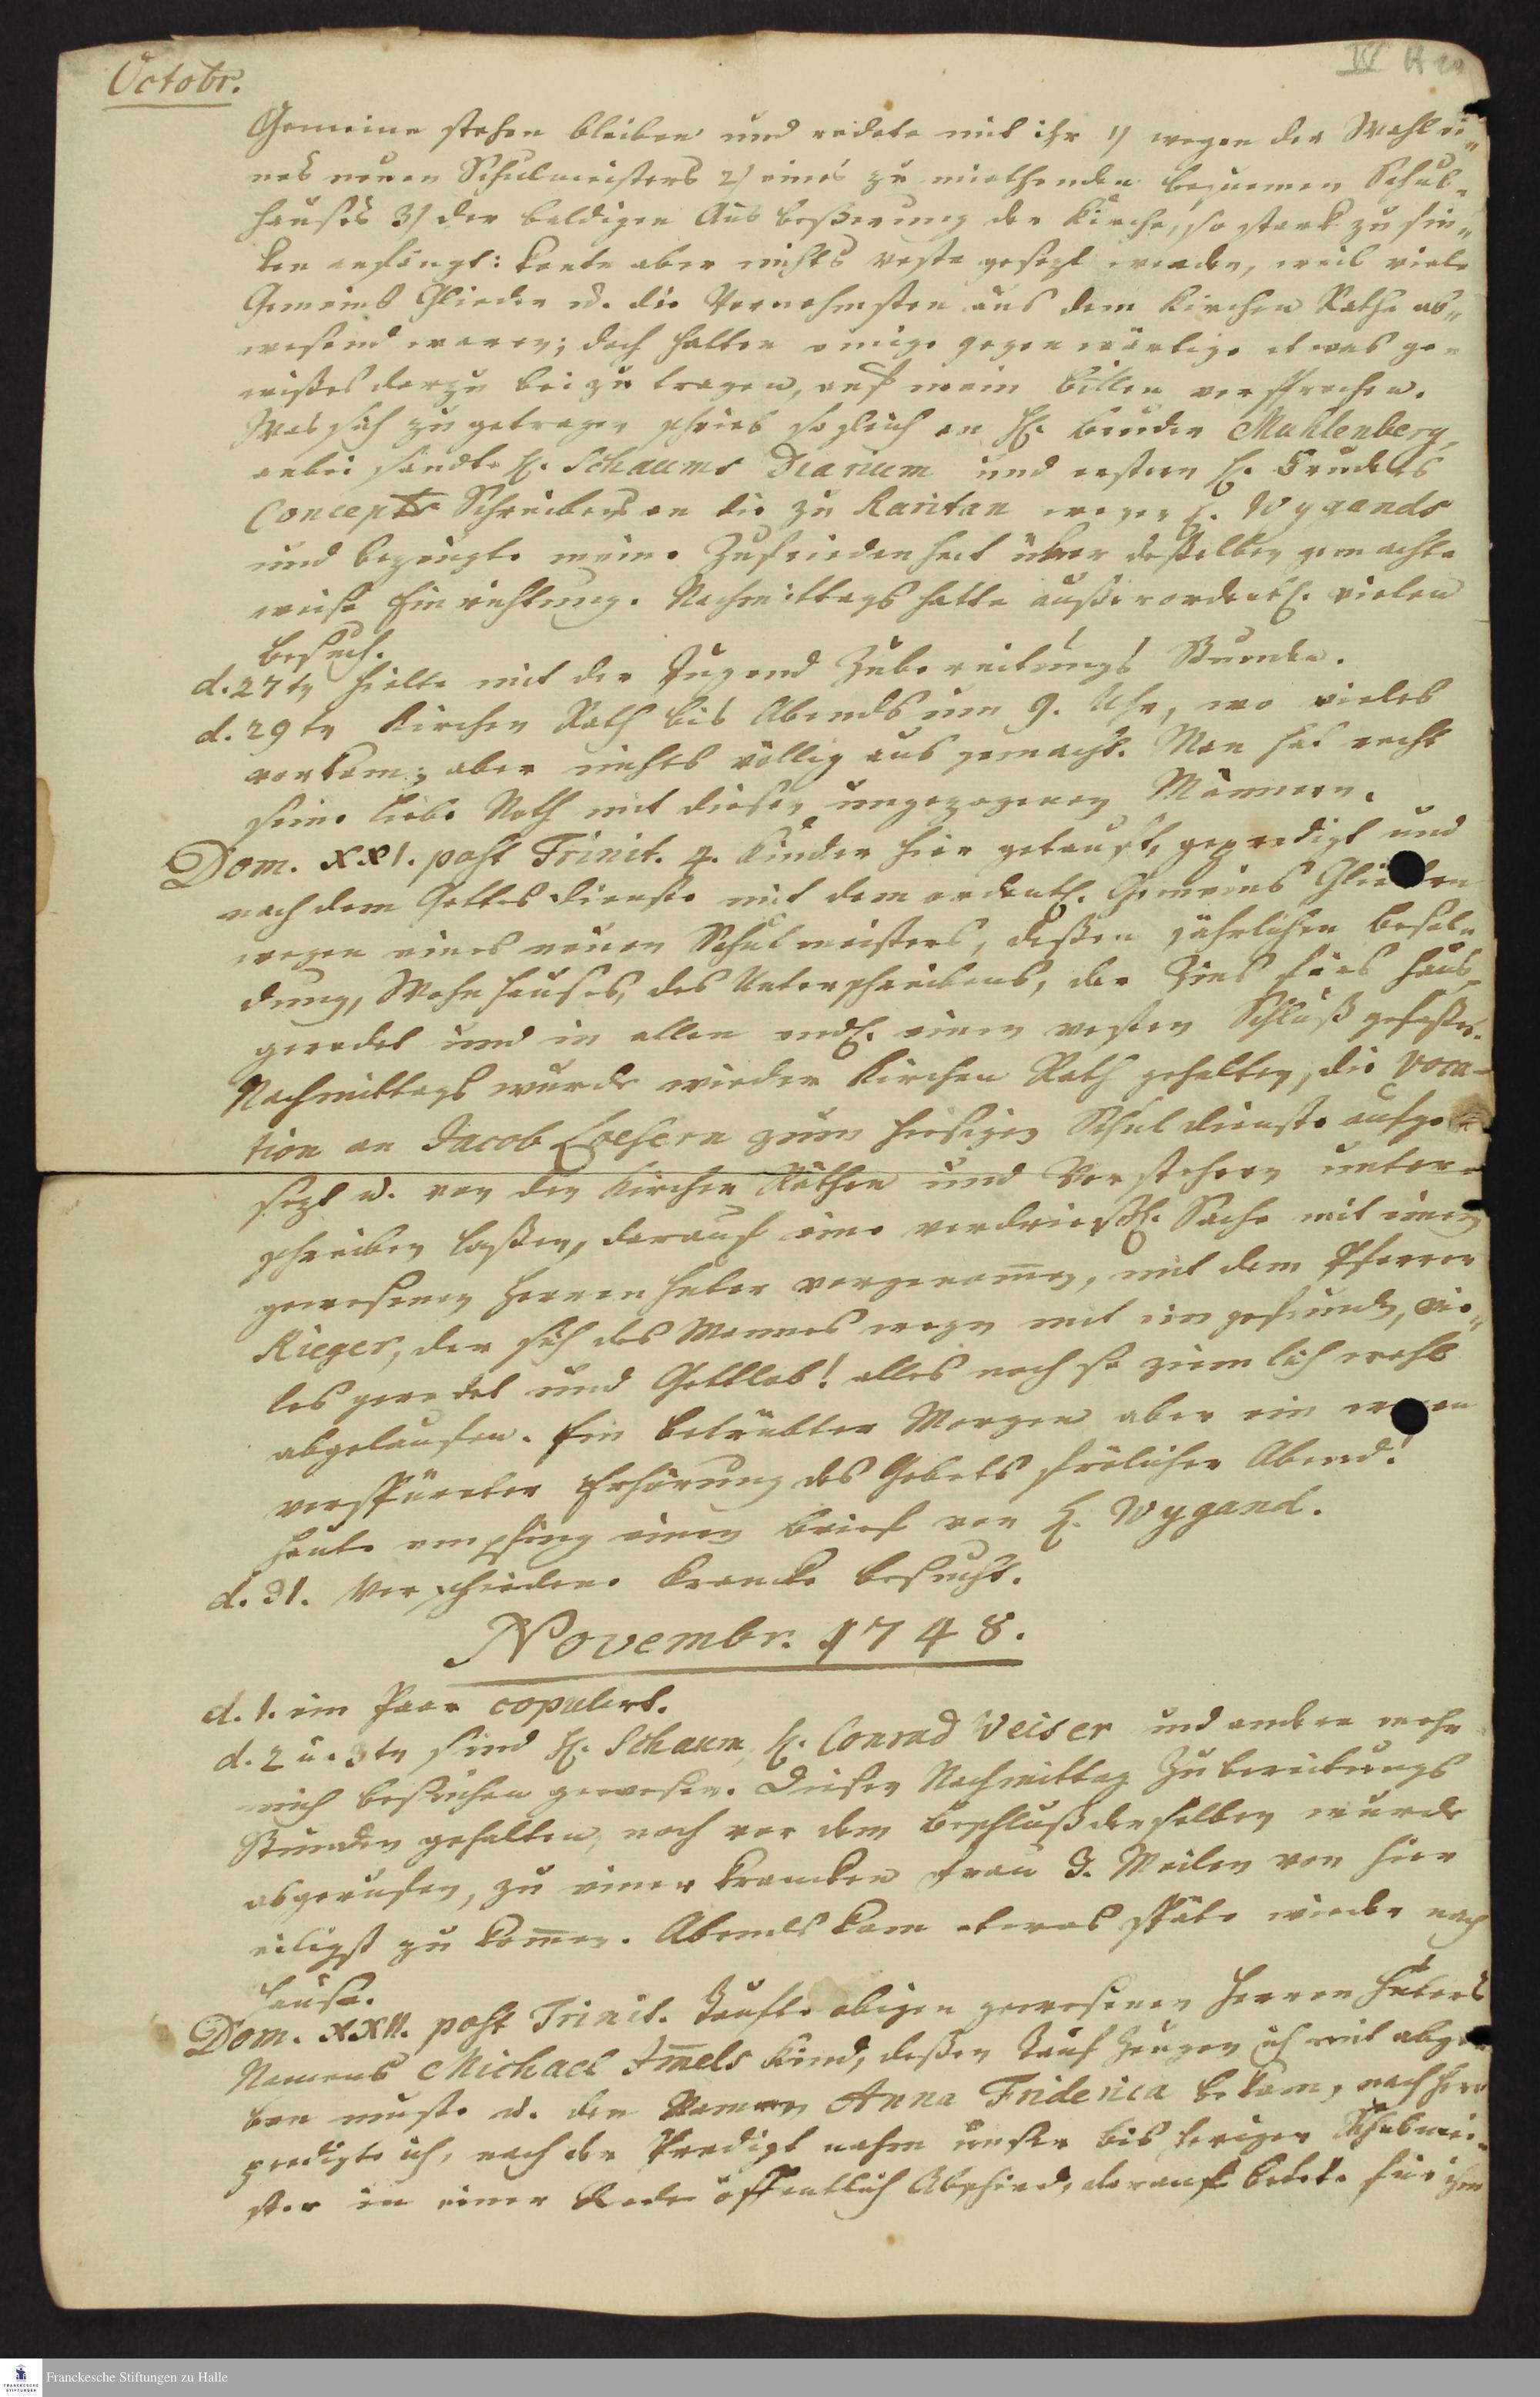 Octobr.
IV H 20
Gemeine stehen bleiben und redete mit ihr 1) wegen der Wahl ei„
nes neuen Schulmeisters 2) eines zu miethenden bequemen Schul„
hauses 3) der baldigen Ausbeßerung der Kirche, so stark zu sin„
ken anfängt: konte aber nichts veste gesezt werden, weil viele
Gemeins Glieder u. die Vornehmsten aus dem Kirchen Rathe ab„
wesend waren; doch hatten einige gegenwärtige etwas ge„
wißes darzu beizutragen, auf mein bitten versprochen.
Was sich zugetragen schrieb sogleich an H. Bruder Muhlenberg,
anbei sandte H. Schaums Diarium und erstern H. Bruders
Concept Schreibens an die zu Raritan wegen H. Wygands
und bezeugte meine Zufriedenheit über desselben gemachte
weise Einrichtung. Nachmittags hatte außerordentl. vielen
Besuch.
d. 27tn hielte mit der Jugend Zubereitungs Stunde.
d. 29tn Kirchen Rath bis Abends um 9. Uhr, wo vieles
vorkam; aber nichts völlig ausgemacht. Man hat recht
seine liebe Noth mit diesen ungezogenen Männern.
Dom. XXI. post Trinit. 4. Kinder hier getauft, geprediget und
nach dem Gottesdienste mit dem ordentl. Gemeins Gliedern
wegen eines neuen Schulmeisters, deßen jährlichen Besol„
dung, Wohnhauses, des Unterschreibens, der Zins fürs Haus
geredet und in allen endl. einen vesten Schluß gefaßet.
Nachmittags wurde wieder Kirchen Rath gehalten, die Voca-
tion an Jacob Loesern zum hiesigen Schuldienste aufge„
sezt u. von den Kirchen Räthen und Vorstehern unter„
schreiben laßen, darauf eine verdrießl. Sache mit einem
gewesenen Herrenhuter vorgenomen, mit dem Pfarrer
Rieger, der sich des Mannes wegen mit eingefunden, vie„
les geredet und Gottlob! alles noch so ziemlich wohl
abgelaufen. Ein betrübter Morgen aber ein wegen
verspürter Erhörung des Gebets frölicher Abend!
Heute empfing einen Brief von H. Wygand.
d. 31. Verschiedene Krancke besucht.
Novembr. 1748.
d. 1. ein Paar copulirt.
d. 2 u. 3tn sind H. Schaum, H. Conrad Weiser und andre mehr
mich besuchen gewesen. Diesen Nachmittag Zubereitungs
Stunden gehalten, noch vor dem Beschluß derselben wurde
abgerufen, zu einer krancken Frau 3. Meilen von hier
eiligst zu komen. Abends kam etwas späte wieder nach
Hause.
Dom. XXII. post Trinit. Taufte obigen gewesenen Herrenhuters
Namens Michael Imels Kind, deßen Taufzeugen ich mit abge„
ben muste u. den Namen Anna Friderica bekam, nachher
predigte ich, nach der Predigt nahm unser bisheriger Schulmei„
ster in einer Rede öffentlich Abschied, darauf betete für ihn
Franckesche Stiftungen zu Halle